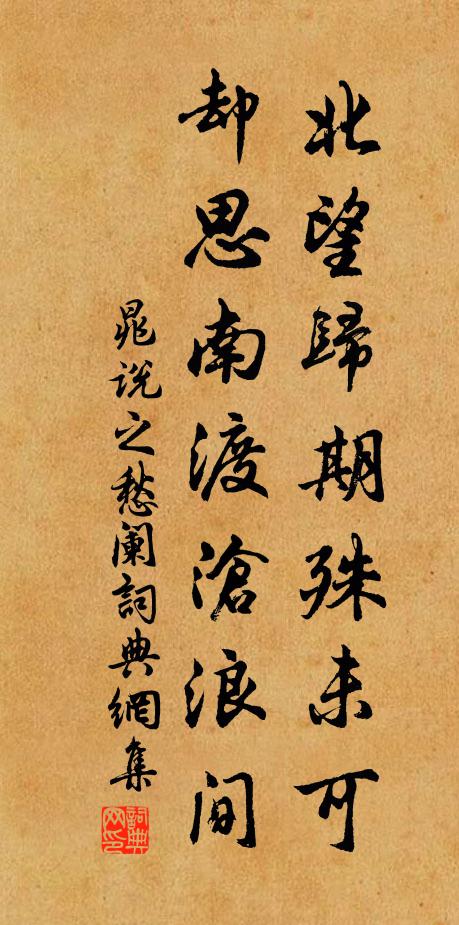 北望歸期殊未可
却思南渡滄浪間
晁說之愁闌詞典網集
詞典网印